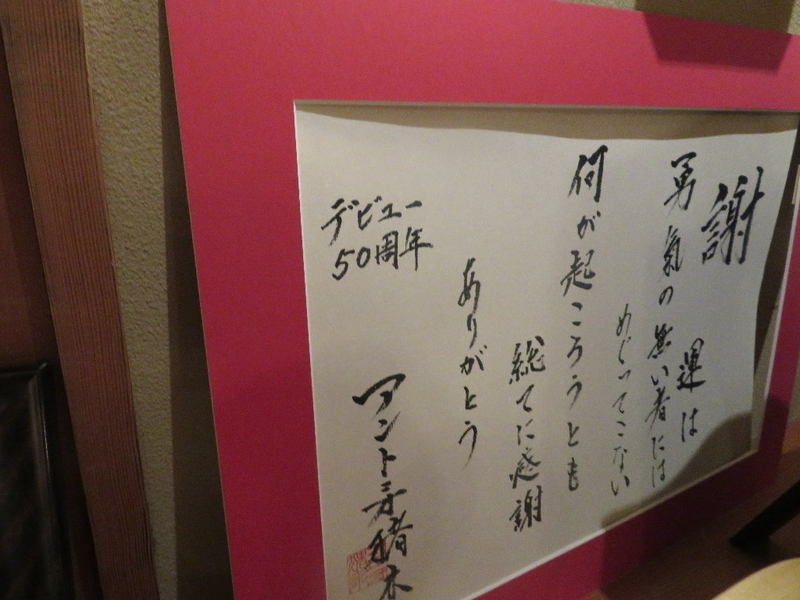 謝
運は
勇気の無い者には
めぐってこない
何が起ころうとも
総てに感謝
ありがとう
デビュー
50周年
アントニオ猪木